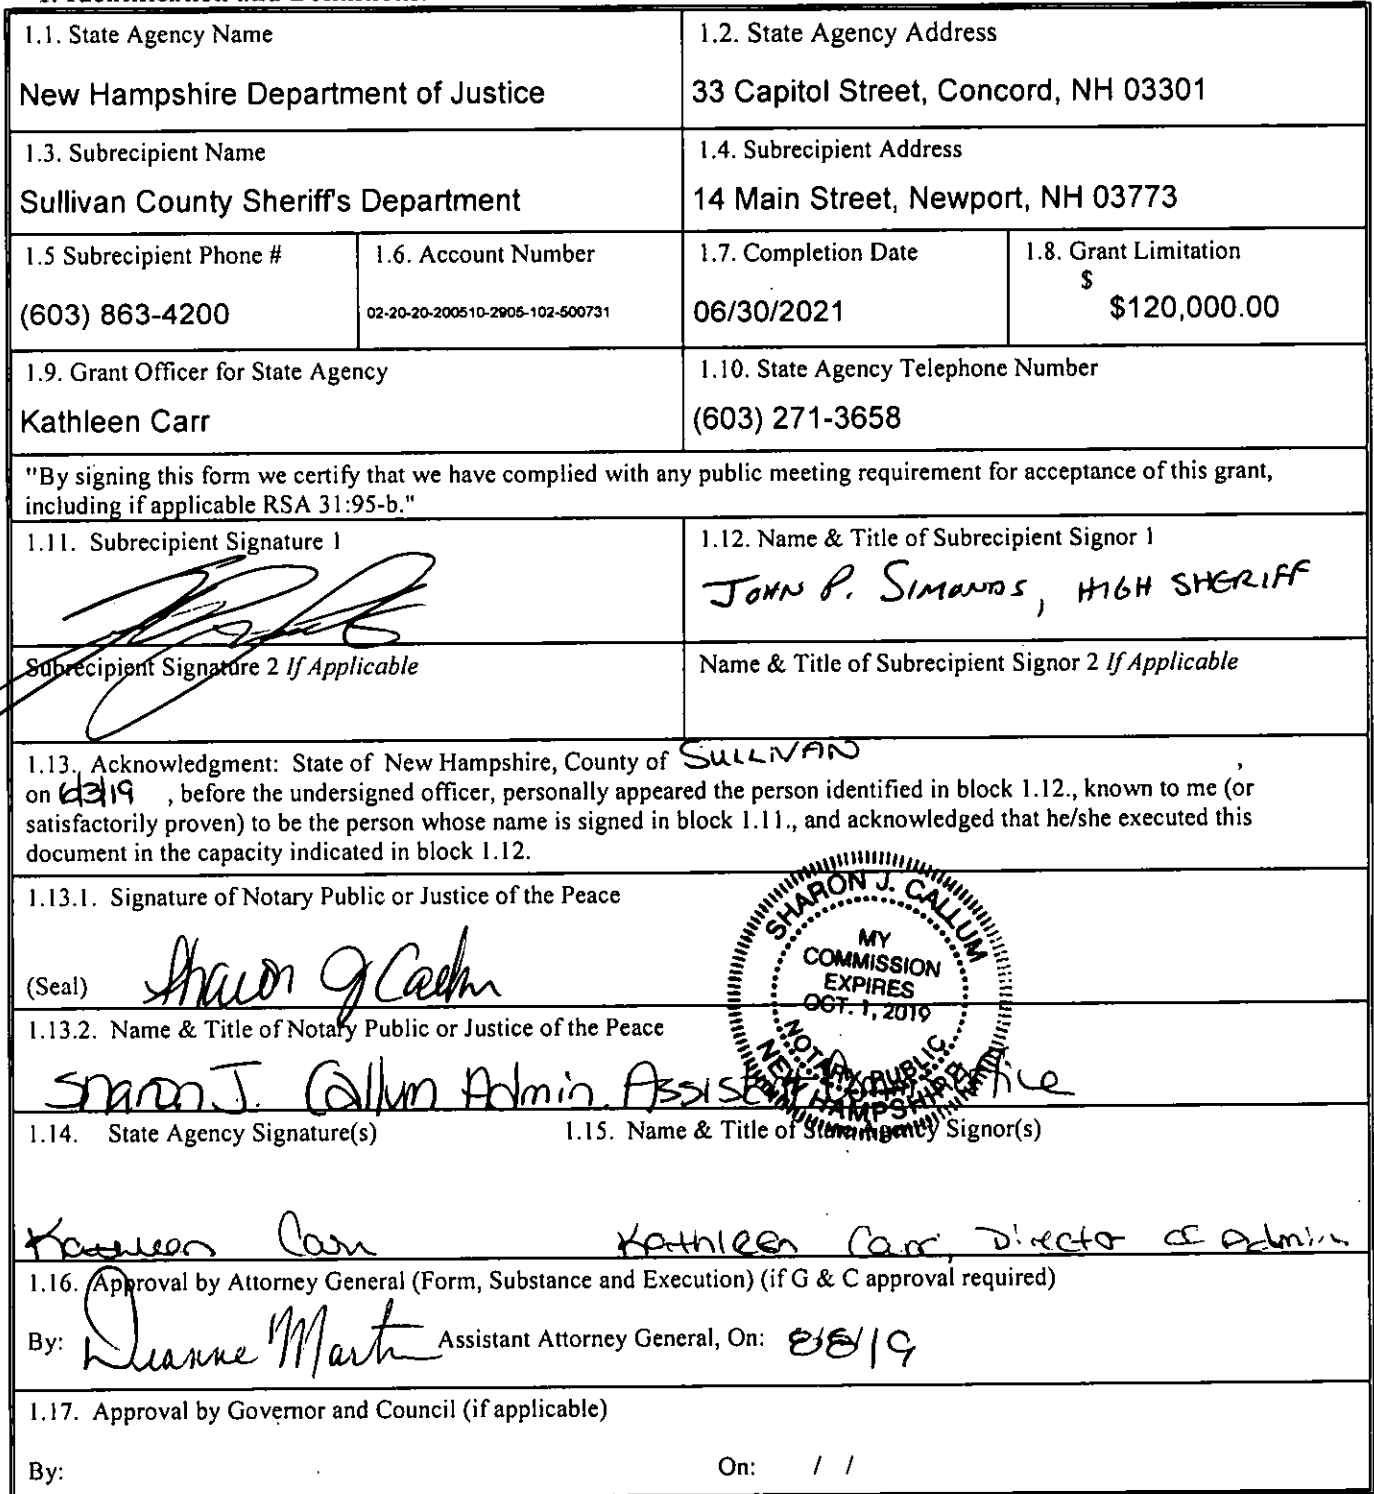 1.1. State Agency Name
New Hampshire Department of Justice
1.2. State Agency Address
33 Capitol Street, Concord, NH 03301
1.3. Subrecipient Name
Sullivan County Sheriff's Department
1.4. Subrecipient Address
14 Main Street, Newport, NH 03773
1.5 Subrecipient Phone #
(603) 863-4200
1.6. Account Number
02-20-20-200510-2905-102-500731
1.7. Completion Date
06/30/2021
1.8. Grant Limitation
$
$120,000.00
1.9. Grant Officer for State Agency
Kathleen Carr
1.10. State Agency Telephone Number
(603) 271-3658
"By signing this form we certify that we have complied with any public meeting requirement for acceptance of this grant,
including if applicable RSA 31:95-b."
1.11. Subrecipient Signature 1
1.12. Name & Title of Subrecipient Signor 1
JOHN P. SIMONDS, HIGH SHERIFF
Subrecipient Signature 2 If Applicable
Name & Title of Subrecipient Signor 2 If Applicable
1.13. Acknowledgment: State of New Hampshire, County of SULLIVAN ,
on 6/3/19 , before the undersigned officer, personally appeared the person identified in block 1.12., known to me (or
satisfactorily proven) to be the person whose name is signed in block 1.11., and acknowledged that he/she executed this
document in the capacity indicated in block 1.12.
1.13.1. Signature of Notary Public or Justice of the Peace
(Seal) Sharon J Callum
SHARON J. CALLUM
MY
COMMISSION
EXPIRES
OCT. 1, 2019
NOTARY PUBLIC
NEW HAMPSHIRE
1.13.2. Name & Title of Notary Public or Justice of the Peace
Sharon J. Callum Admin. Assistant
1.14. State Agency Signature(s)
1.15. Name & Title of State Agency Signor(s)
Kathleen Carr
Kathleen Carr, Director of Admin
1.16. Approval by Attorney General (Form, Substance and Execution) (if G & C approval required)
By: Dianne Martin Assistant Attorney General, On: 8/8/19
1.17. Approval by Governor and Council (if applicable)
By:
On: / /